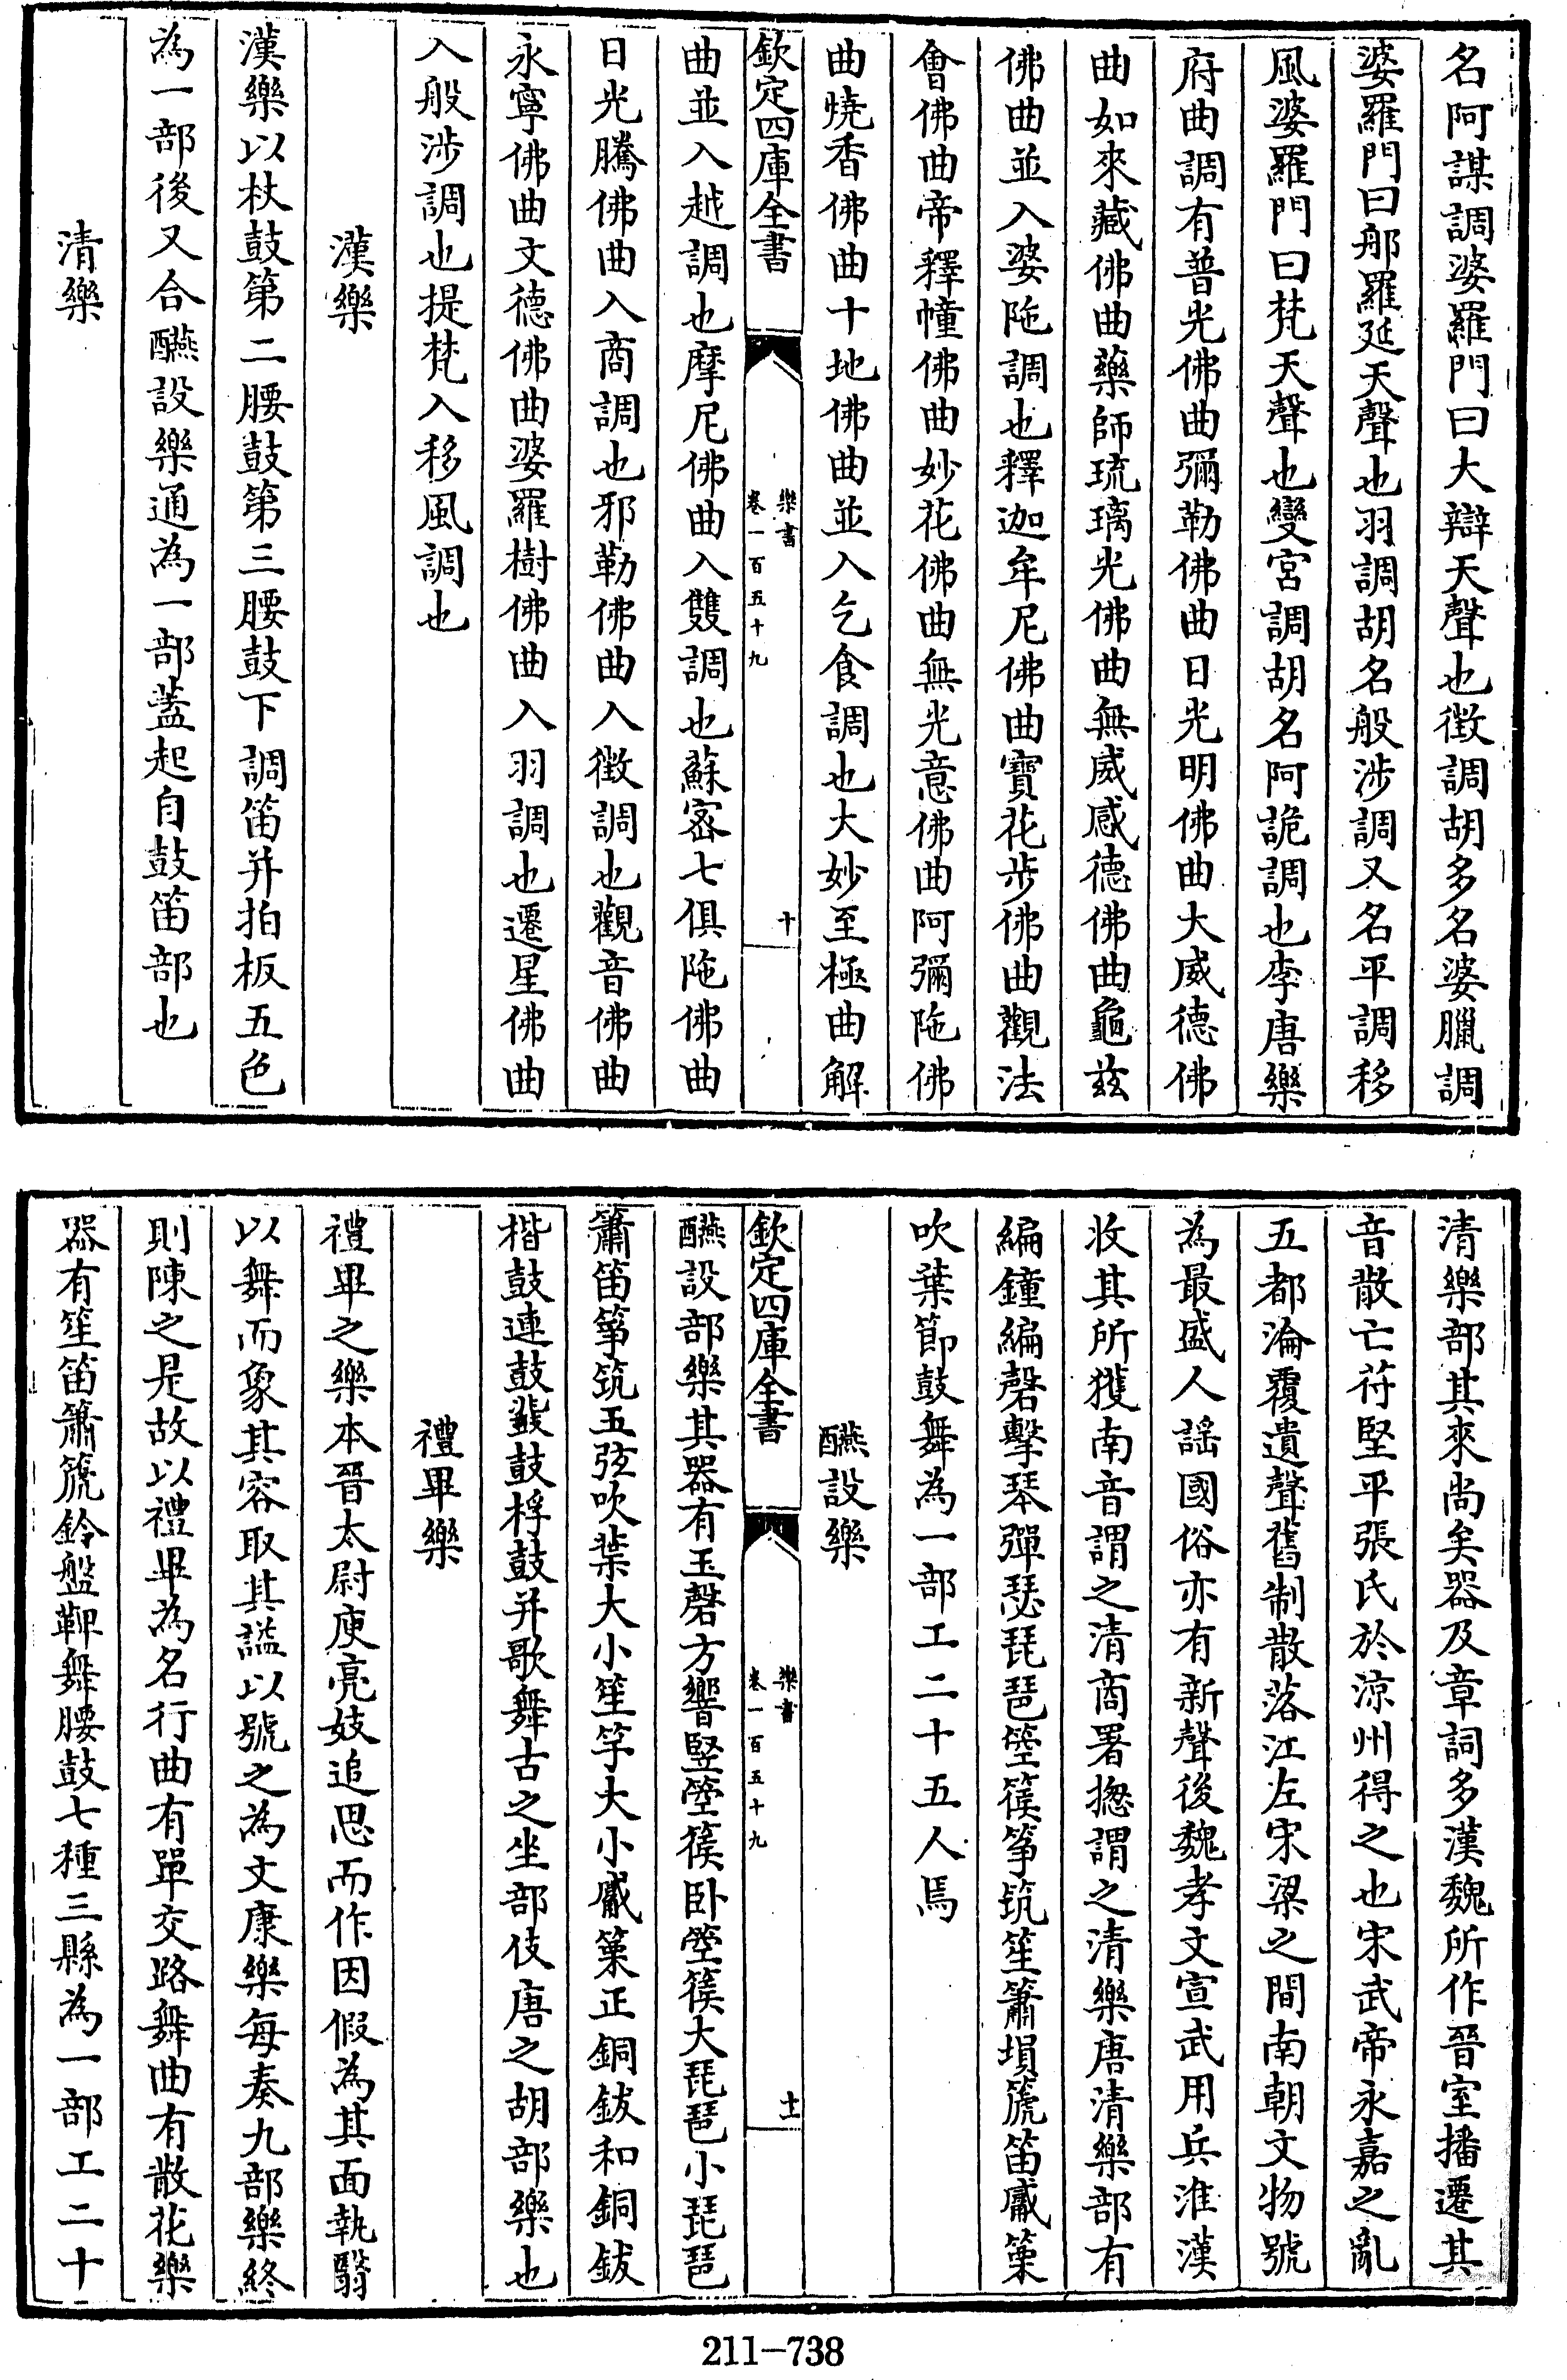 名阿謀調婆羅門曰大辯天聲也徴調胡多名婆臘調
婆羅門曰郍羅延天聲也羽調胡名般涉調又名平調移
風婆羅門曰梵天聲也變宮調胡名阿詭調也李唐樂
府曲調有普光佛曲彌勒佛曲日光明佛曲大威德佛
曲如來藏佛曲藥師琉璃光佛曲無威感德佛曲龜茲
佛曲並入婆陁調也釋迦牟尼佛曲寶花步佛曲觀法
會佛曲帝釋幢佛曲妙花佛曲無光意佛曲阿彌陁佛
曲燒香佛曲十地佛曲並入乞食調也大妙至極曲解
欽定四庫全書
樂書
卷一百五十九
十
曲並入越調也摩尼佛曲入雙調也蘇宻七俱陁佛曲
日光騰佛曲入商調也邪勒佛曲入徴調也觀音佛曲
永寧佛曲文德佛曲婆羅樹佛曲入羽調也遷星佛曲
入般涉調也提梵入移風調也
漢樂
漢樂以杖鼓第二腰鼓第三腰鼓下調笛并拍板五色
為一部後又合醼設樂通為一部葢起自鼓笛部也
清樂
清樂部其來尚矣器及章詞多漢魏所作晉室播遷其
音散亡苻堅平張氏於涼州得之也宋武帝永嘉之亂
五都淪覆遺聲舊制散落江左宋梁之間南朝文物號
為最盛人謡國俗亦有新聲後魏孝文宣武用兵淮漢
收其所獲南音謂之清商署揔謂之清樂唐清樂部有
編鐘編磬擊琴彈瑟琵琶箜篌筝筑笙簫塤篪笛觱篥
吹葉節鼓舞為一部工二十五人焉
醼設樂
欽定四庫全書
樂書
卷一百五十九
十一
醼設部樂其器有玉磬方響豎箜篌卧箜篌大琵琶小琵琶
簫笛筝筑五弦吹葉大小笙竽大小觱篥正銅鈸和銅鈸
楷鼓連鼓鼗鼓桴鼓并歌舞古之坐部伎唐之胡部樂也
禮畢樂
禮畢之樂本晉太尉庾亮妓追思而作因假為其面執翳
以舞而象其容取其諡以號之為文康樂每奏九部樂終
則陳之是故以禮畢為名行曲有單交路舞曲有散花樂
器有笙笛簫篪鈴盤鞞舞腰鼓七種三縣為一部工二十
211-738